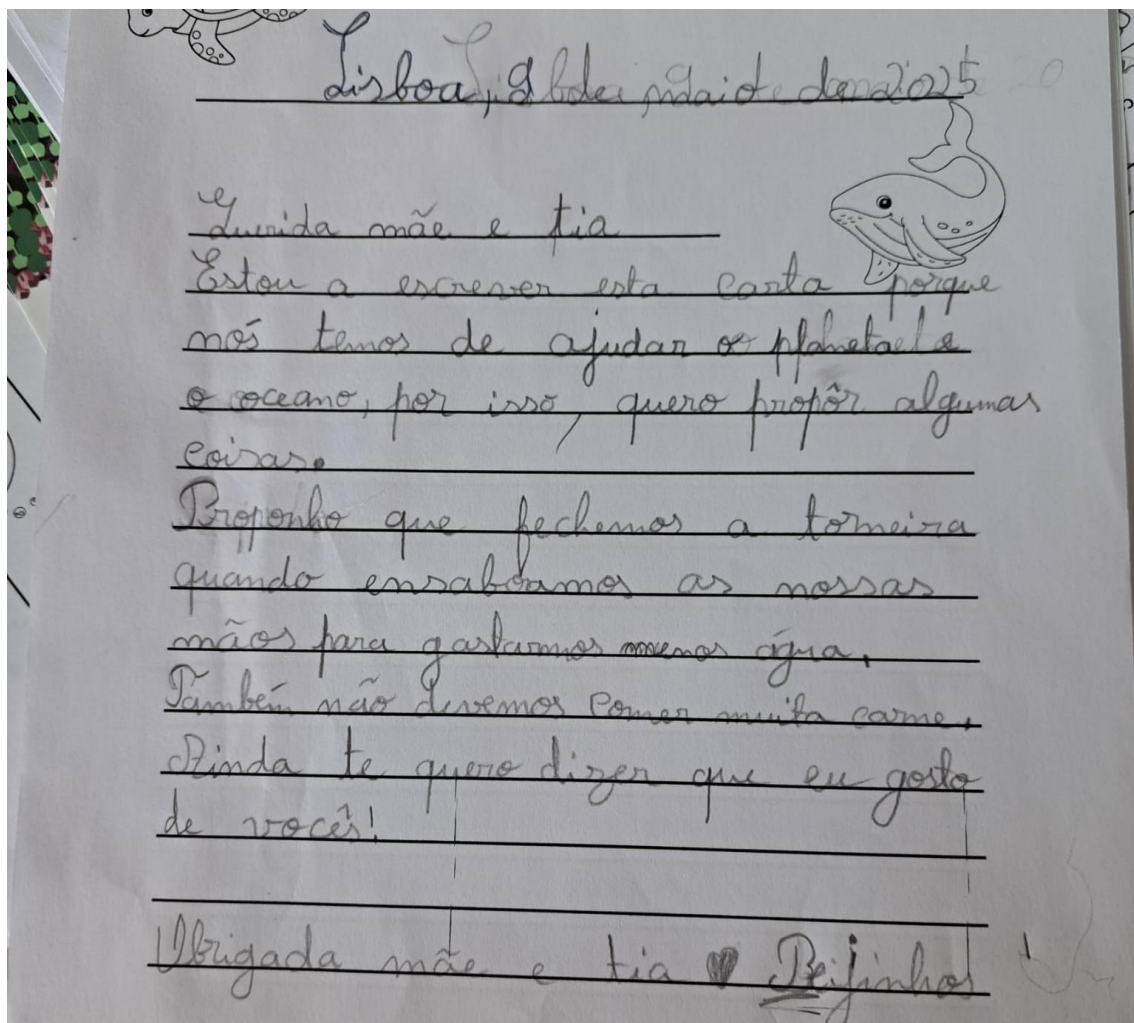 Lisboa, 9 de maio de 2025
Querida mãe e tia
Estou a escrever esta carta porque
nós temos de ajudar o planeta e
o oceano, por isso, quero propôr algumas
coisas.
Proponho que fechemos a torneira
quando ensaboamos as nossas
mãos para gastarmos menos água.
Também não devemos comer muita carne.
Ainda te quero dizer que eu gosto
de vocês!
Obrigada mãe e tia ♥ Beijinhos